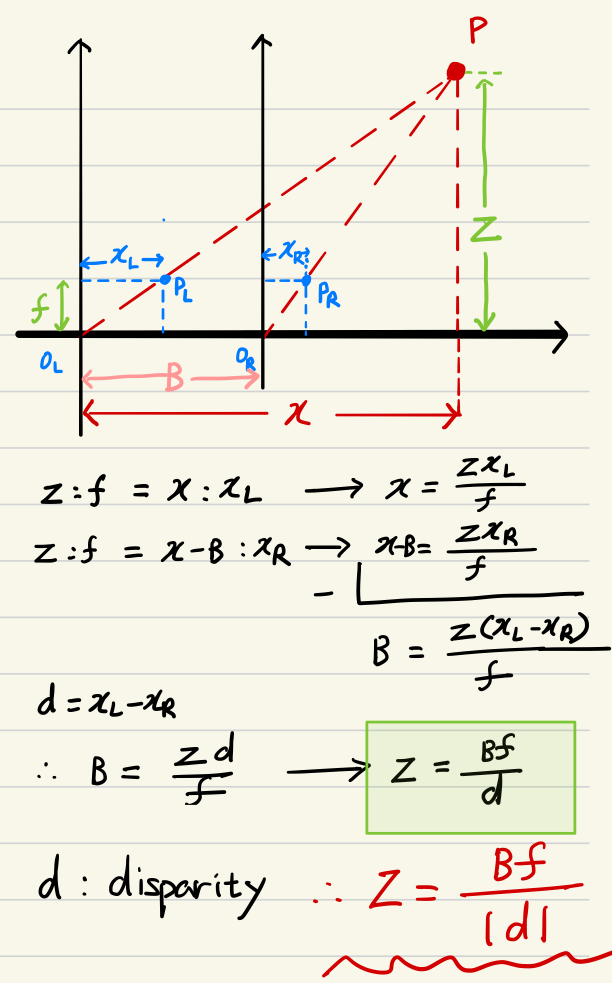 P
x_L
x_R
Z
f
P_L
P_R
O_L
O_R
B
x
z:f = x:x_L → x = zx_L/f
z:f = x-B:x_R → x-B = zx_R/f
-
B = z(x_L-x_R)/f
d = x_L-x_R
∴ B = zd/f → Z = Bf/d
d : disparity ∴ Z = Bf/|d|